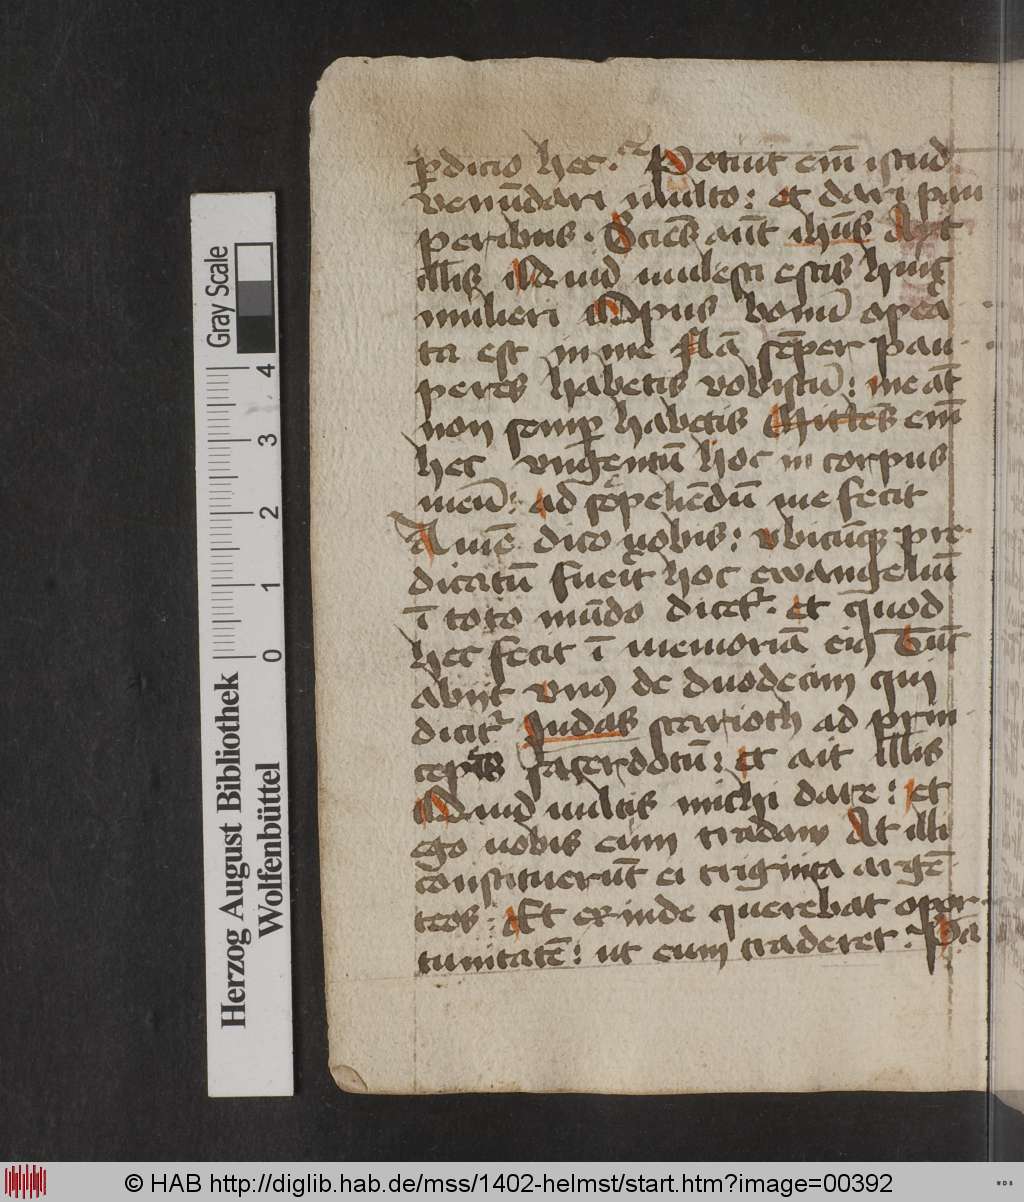 ꝑdicio hec. Potuit em̄ istud
venūdari multo: et dari pau
peribus. Sciēs aūt ihūs Ait
illis Quid molesti estis huic
mulieri Opus bonū opera
ta est in me Nā sēper pau
peres habetis vobiscū: me āt
non semꝑ habetis Mittēs em̄
hec vngentū hoc in corpus
meū: ad sepeliēdū me fecit
Amē dico vobis: vbicūqꝫ pre
dicatū fueit hoc ewangeliū
ī toto mūdo dicet᷑. et quod
hec fecit ī memoriā eiꝰ Tūc
abijt vnꝰ de duodecim qui
dicit᷑ Judas scarioth ad prin
ceptes sacerdotū: et ait illis
Quid vultis michi dare: et
ego vobis eum tradam At illi
constituerūt ei triginta argē
teos. Et exinde querebat opor
tunitatē: ut eum traderet. Pa
Gray Scale
4
3
2
1
0
Herzog August Bibliothek
Wolfenbüttel
© HAB http://diglib.hab.de/mss/1402-helmst/start.htm?image=00392